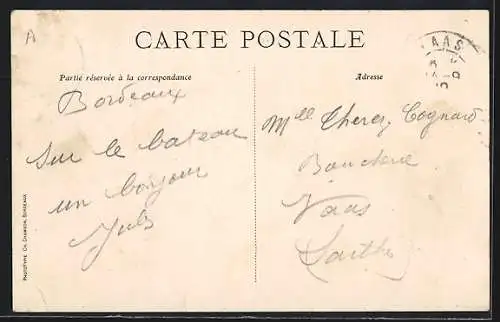 A
CARTE POSTALE
Partie réservée à la correspondance
Adresse
VAAS
Bordeaux
Sur le bateau
un bonjour
Jules
Mlle Cognard
Boucherie
Vaas
Sarthe
PHOTOTYPIE CH. CHAMBON, BORDEAUX